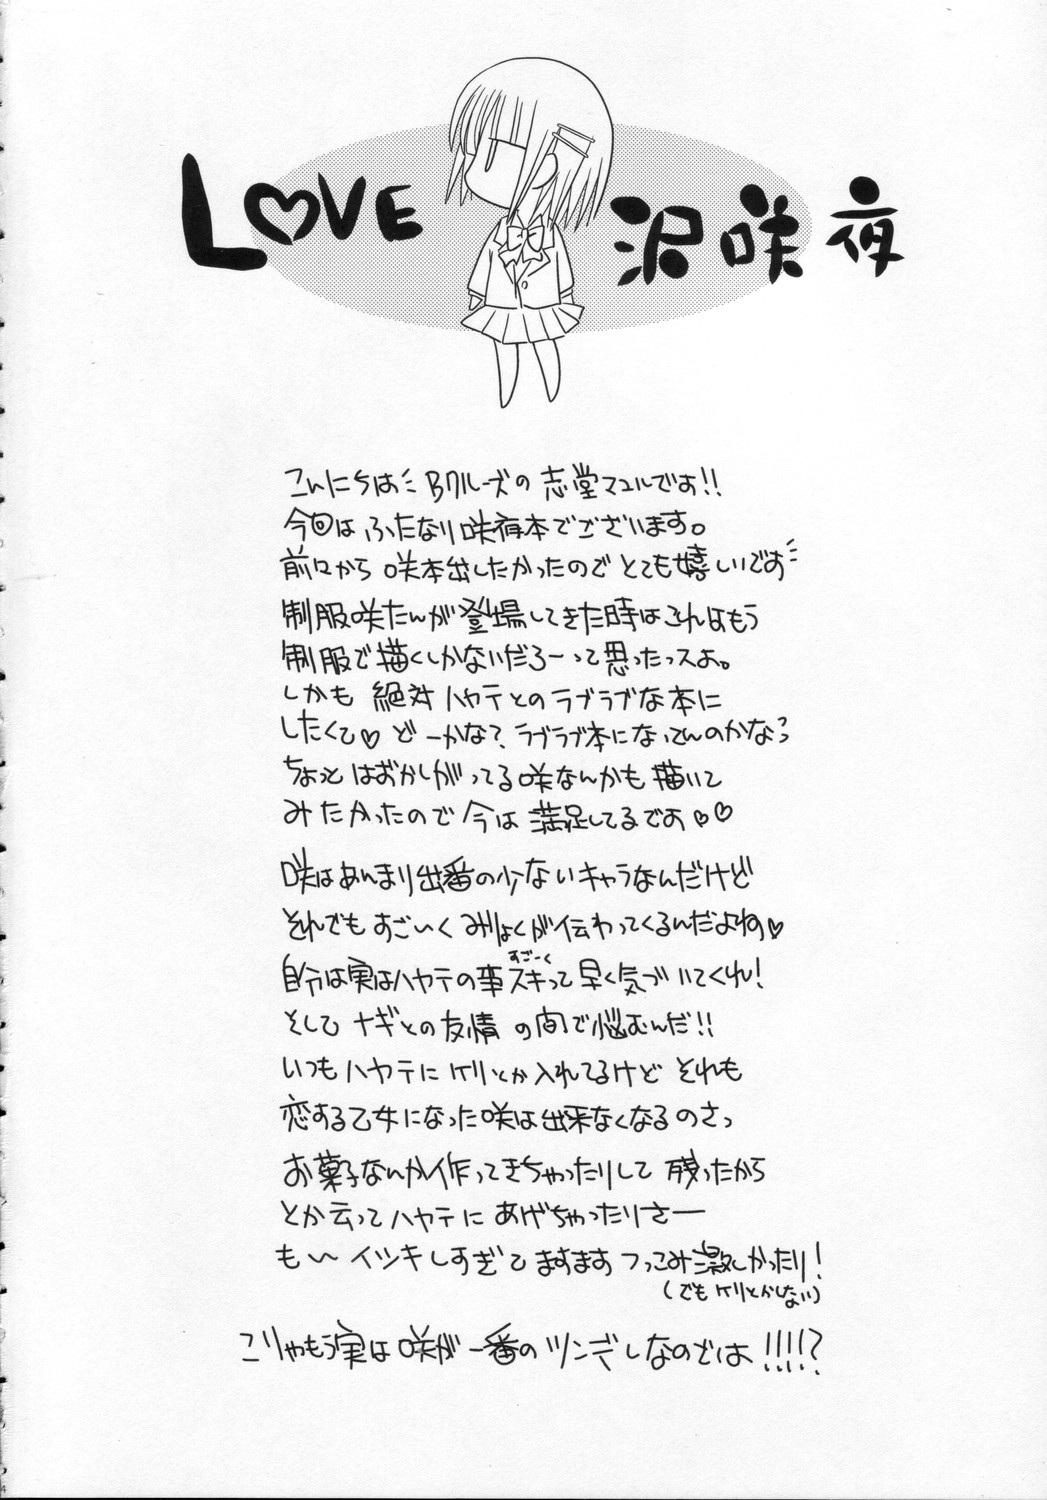 LOVE 沢咲夜
こんにちは Bクルーズの 志堂マユルでずす!!
今回は ふたなり咲夜本でございます。
前々から 咲本出したかったので とても嬉しいです
制服咲たんが登場してきた時はこれはもう
制服で描くしかないだろーって思ったっスよ。
しかも 絶対 ハヤテとのラブラブな本に
したくて♡ どーかな?ラブラブ本になってんのかな?
ちょっとはおかしがってる咲なんかも描いて
みたかったので今は満足してるです♡♡
咲はあんまり出番の少ないキャラなんだけど
それでもすごいくみりょくが伝わってくるんだよね♡
自分は実はハヤテの事スキって早く気づいてくれ!
すごーく
そしてナギとの友情の間で悩むんだ!!
いつもハヤテにケリとか入れてるけどそれも
恋する乙女になった咲は出来なくなるのさっ
お菓子なんか作ってきちゃったりして 残ったから
とか云ってハヤテに あげちゃったりさー
も〜イシキしすぎてますますつっこみ激しかったり!
(でもケリとかしない)
こりゃもう実は咲が一番のツンデレなのでは!!!!?